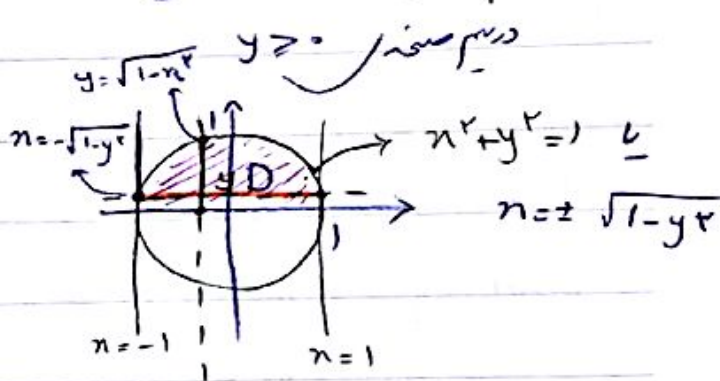 در نیم صفحه y ≥ ۰
y = √1-x²
x = -√1-y²
x² + y² = 1 یا
x = ± √1-y²
1
y D
1
x = -1
x = 1